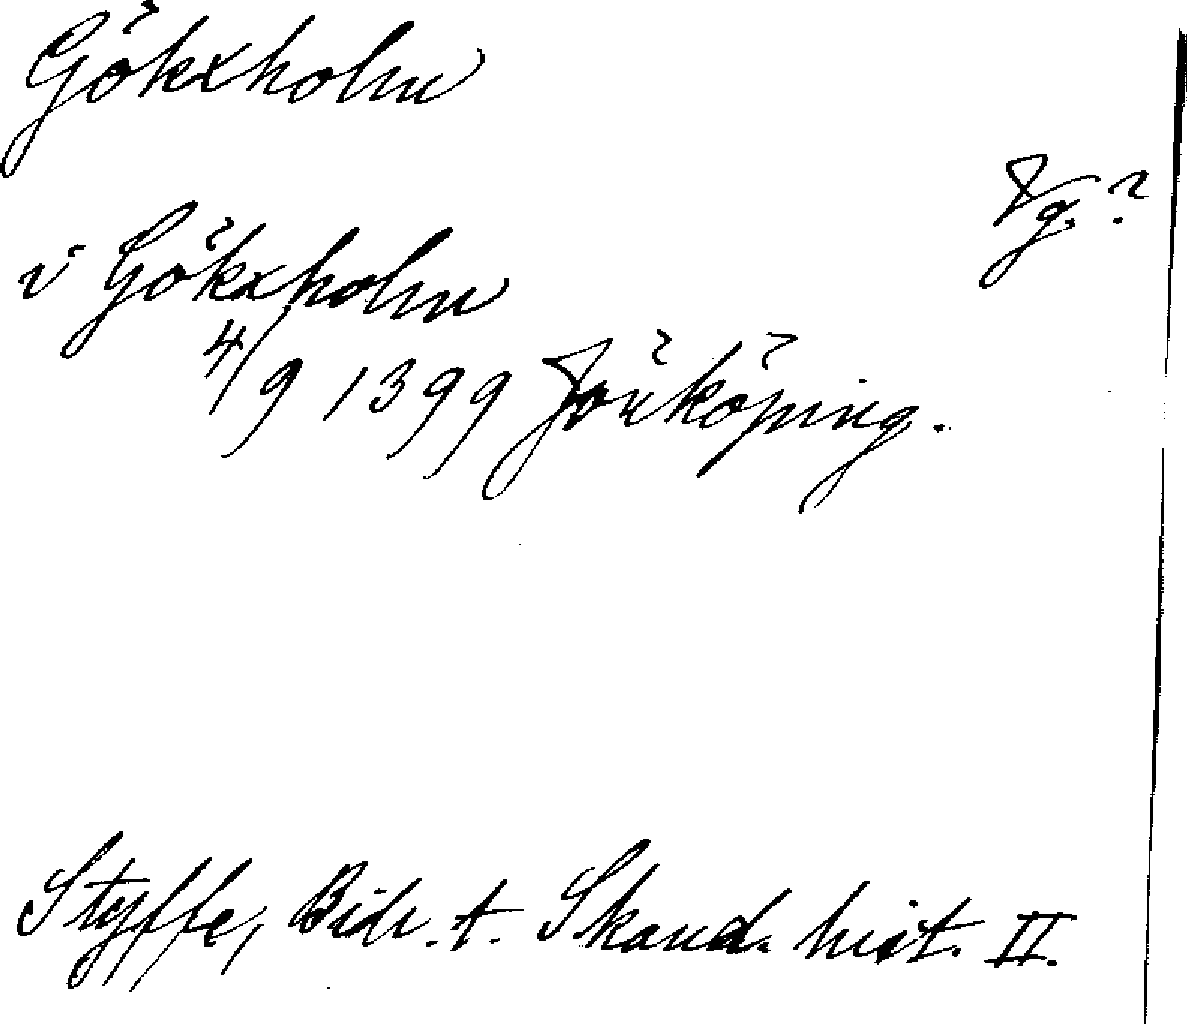 Gökxholm
Vg. ?
i Gökxholm
4/9 1399 Jönköping.
Styffe, Bidr. t. Skand. hist. II.